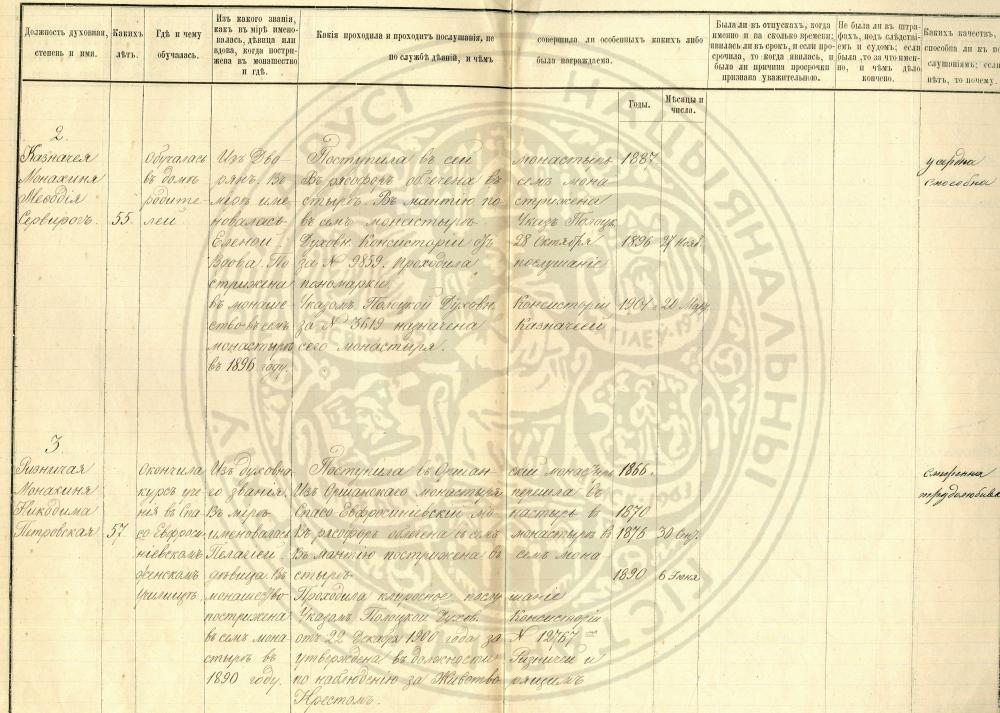 Должность духовная, степень и имя.
Какихъ лѣтъ.
Гдѣ и чему обучалась.
Изъ какого званія, какъ въ мірѣ имено-
валась, дѣвица или
вдова, когда постри-
жена въ монашество
и гдѣ.
Какія проходила и проходитъ послушанія, не совершила ли особенныхъ какихъ либо
по службѣ дѣяній, и чѣмъ была награждаема.
Годы.
Мѣсяцы и
числа.
Была ли въ отпускахъ, когда
именно и на сколько времени;
явилась ли въ срокъ, и если про-
срочила, то когда явилась, и
была ли причина просрочки
признана уважительною.
Не была ли въ штра-
фахъ, подъ слѣдстві-
емъ и судомъ; если
была, то за что имен-
но, и чѣмъ дѣло
кончено.
Какихъ качествъ,
способна ли къ по
слушаніямъ; если
нѣтъ, то почему.
2
Казначея
Монахиня
Меѳодія
55
Обучалась
въ домѣ
родите-
лей
Изъ Дво-
рянъ. Въ
мірѣ име-
новалась
Еленой.
Вдова. По
стрижена
въ монаше-
ство въ семъ
монастырѣ
въ 1896 году.
Поступила въ сей монастырь 1887
Въ рясофоръ облечена въ семъ мона
стырѣ. Въ мантію по стрижена
въ семъ монастырѣ Указ. Полоцк.
Духовн. Консисторіи отъ 28 Октября 1896 27 Нояб.
за № 9859. Проходила послушаніе
пономарки
Указомъ Полоцкой Духовн. Консисторіи 1901 20 Мар.
за № 3619 назначена Казначеей
сего монастыря.
усердна
способна
3
Ризничая
Монахиня
Никодима
Петровская
57
Окончила
курсъ уче-
нія въ Спа-
со Евфроси-
ніевскомъ
женскомъ
училищѣ
Изъ духовна-
го званія.
Въ мірѣ
именовалась
Пелагіей.
дѣвица. Въ
монашество
пострижена
въ семъ мона-
стырѣ въ
1890 году.
Поступила въ Оршан- скій монастырь 1866.
Изъ Оршанскаго монастыря перешла въ
Спасо Евфросиніевскій мо- настырь въ 1870
Въ рясофоръ облечена въ семъ монастырѣ въ 1876 30
Въ мантію пострижена въ семъ мона
стырѣ 1890 6 Іюня
Проходила клиросное послу шаніе
Указомъ Полоцкой Духов. Консисторіи
отъ 22 Декабря 1900 года за № 12767
утверждена въ должности Ризничей и
по наблюденію за Животво рящимъ
Крестомъ.
смиренна
трудолюбива